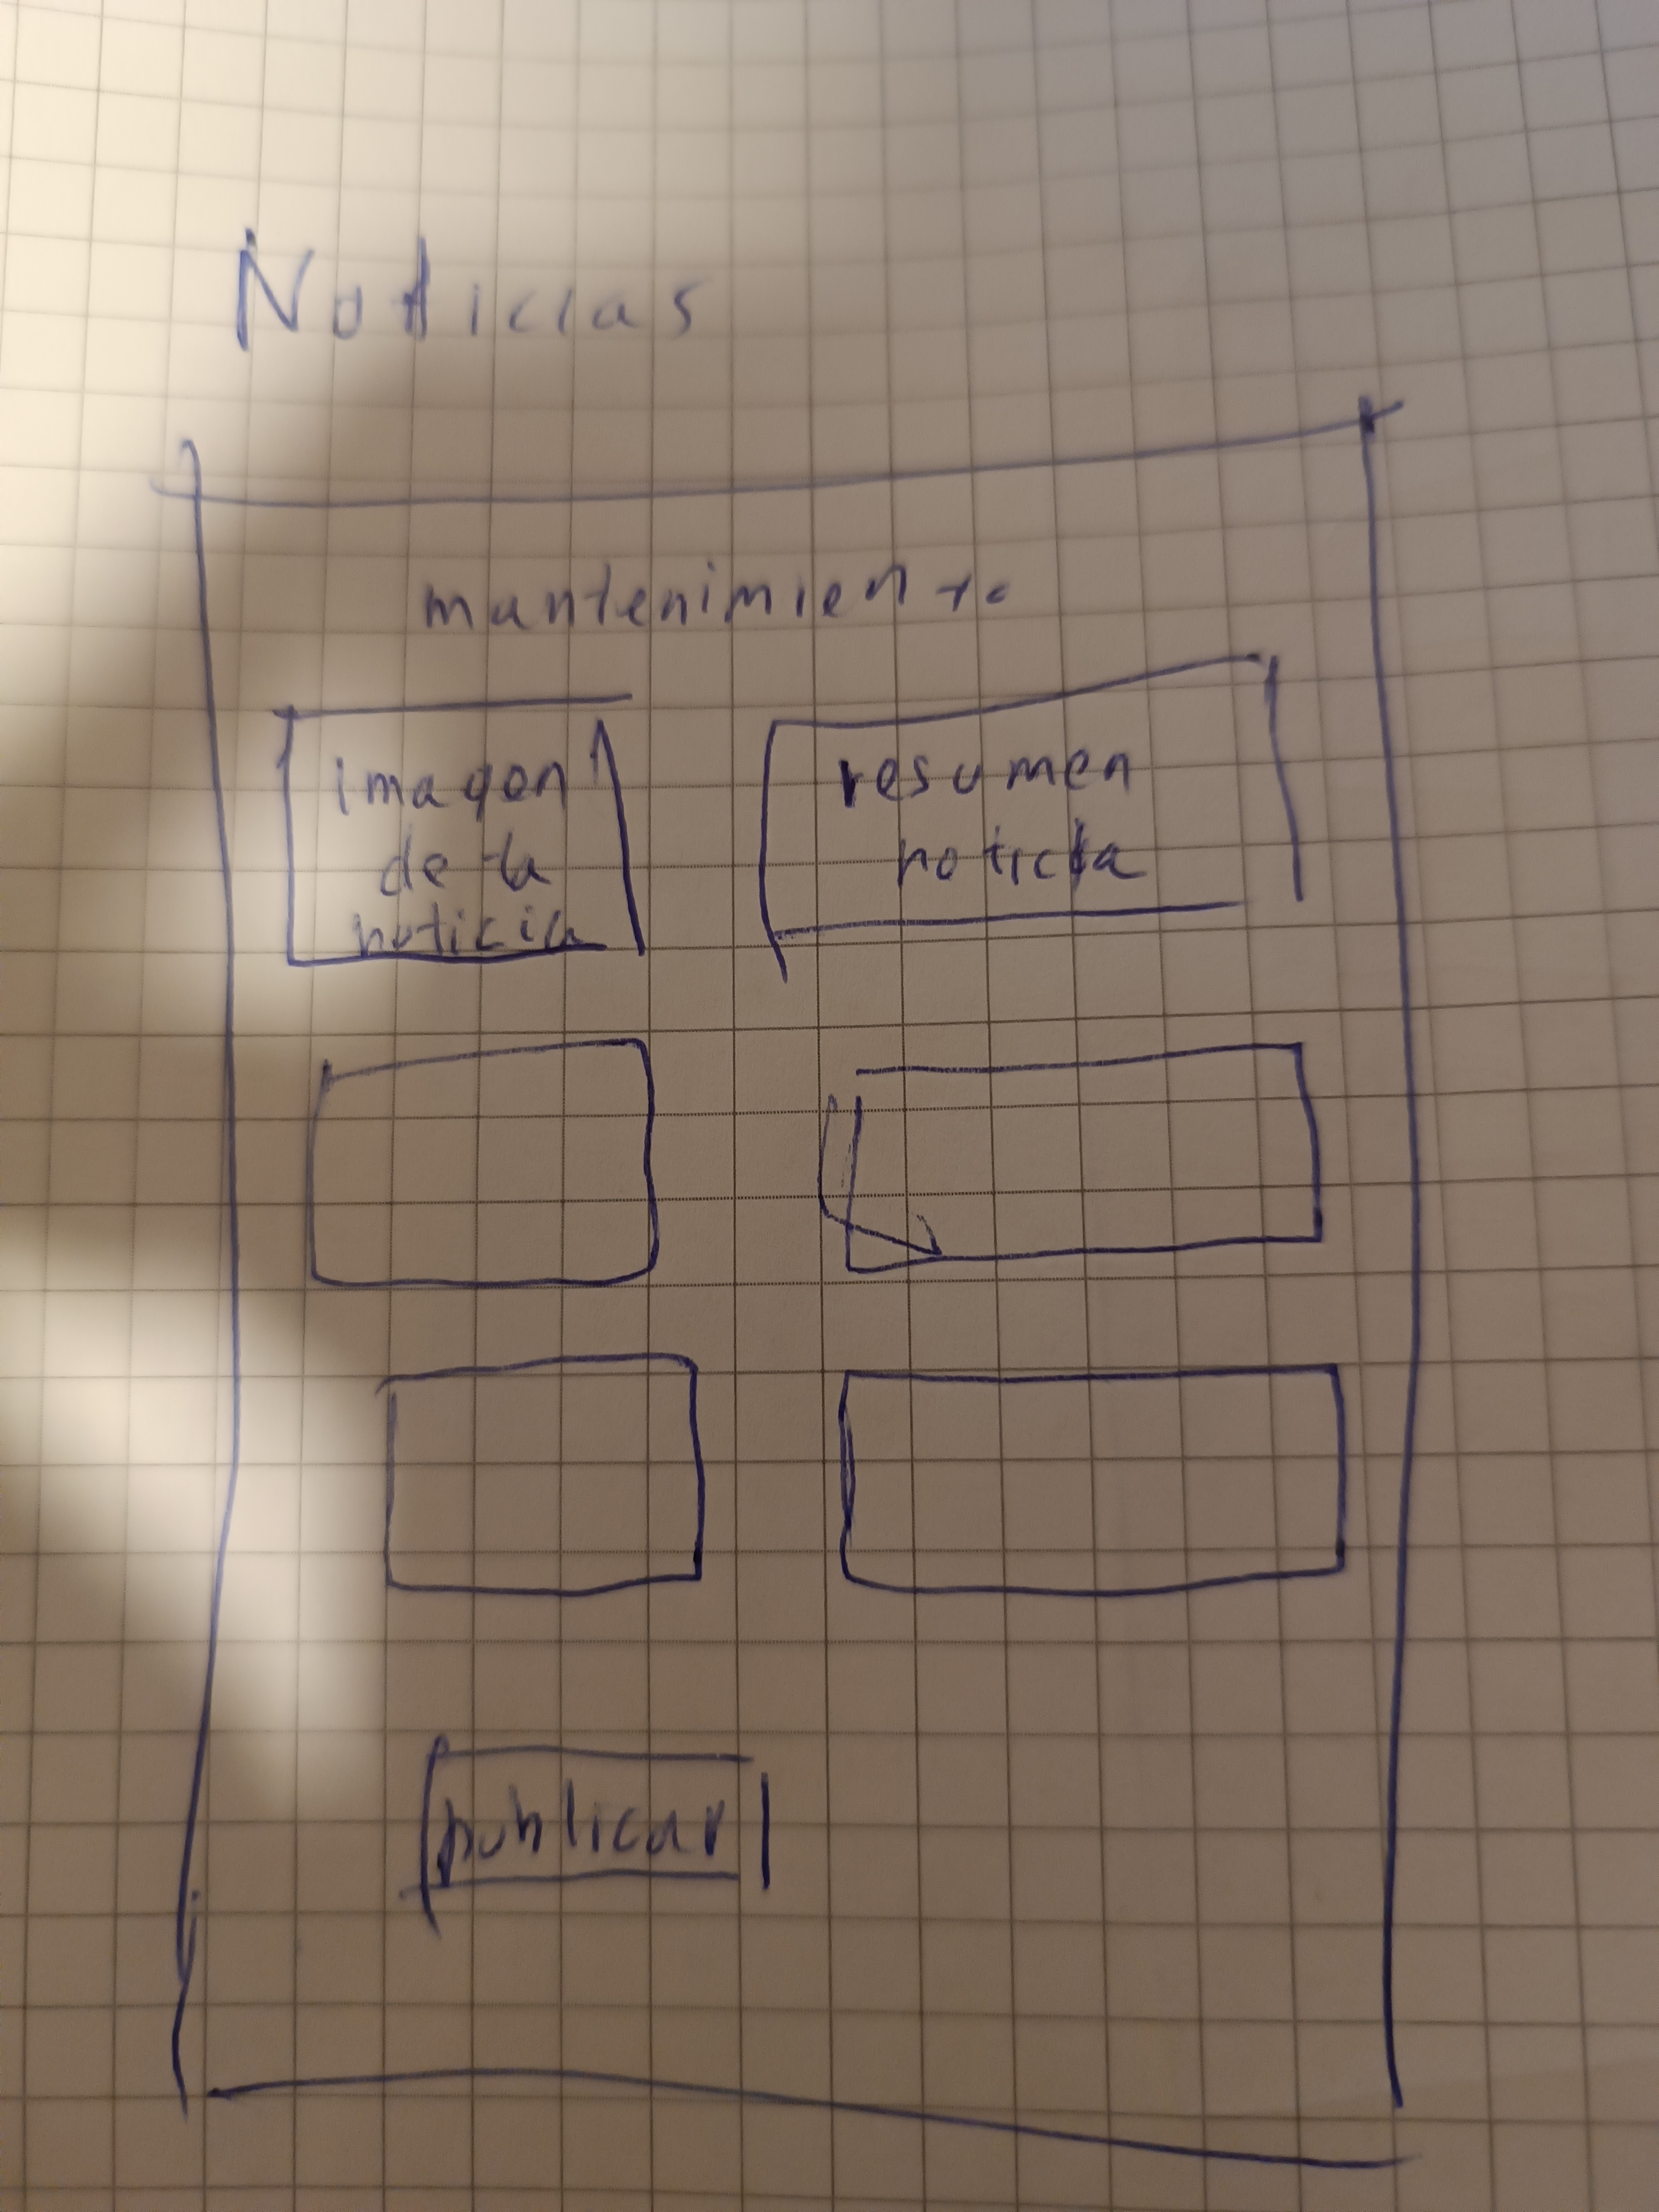 Noticias
mantenimiento
imagen
de la
noticia
resumen
noticia
publicar